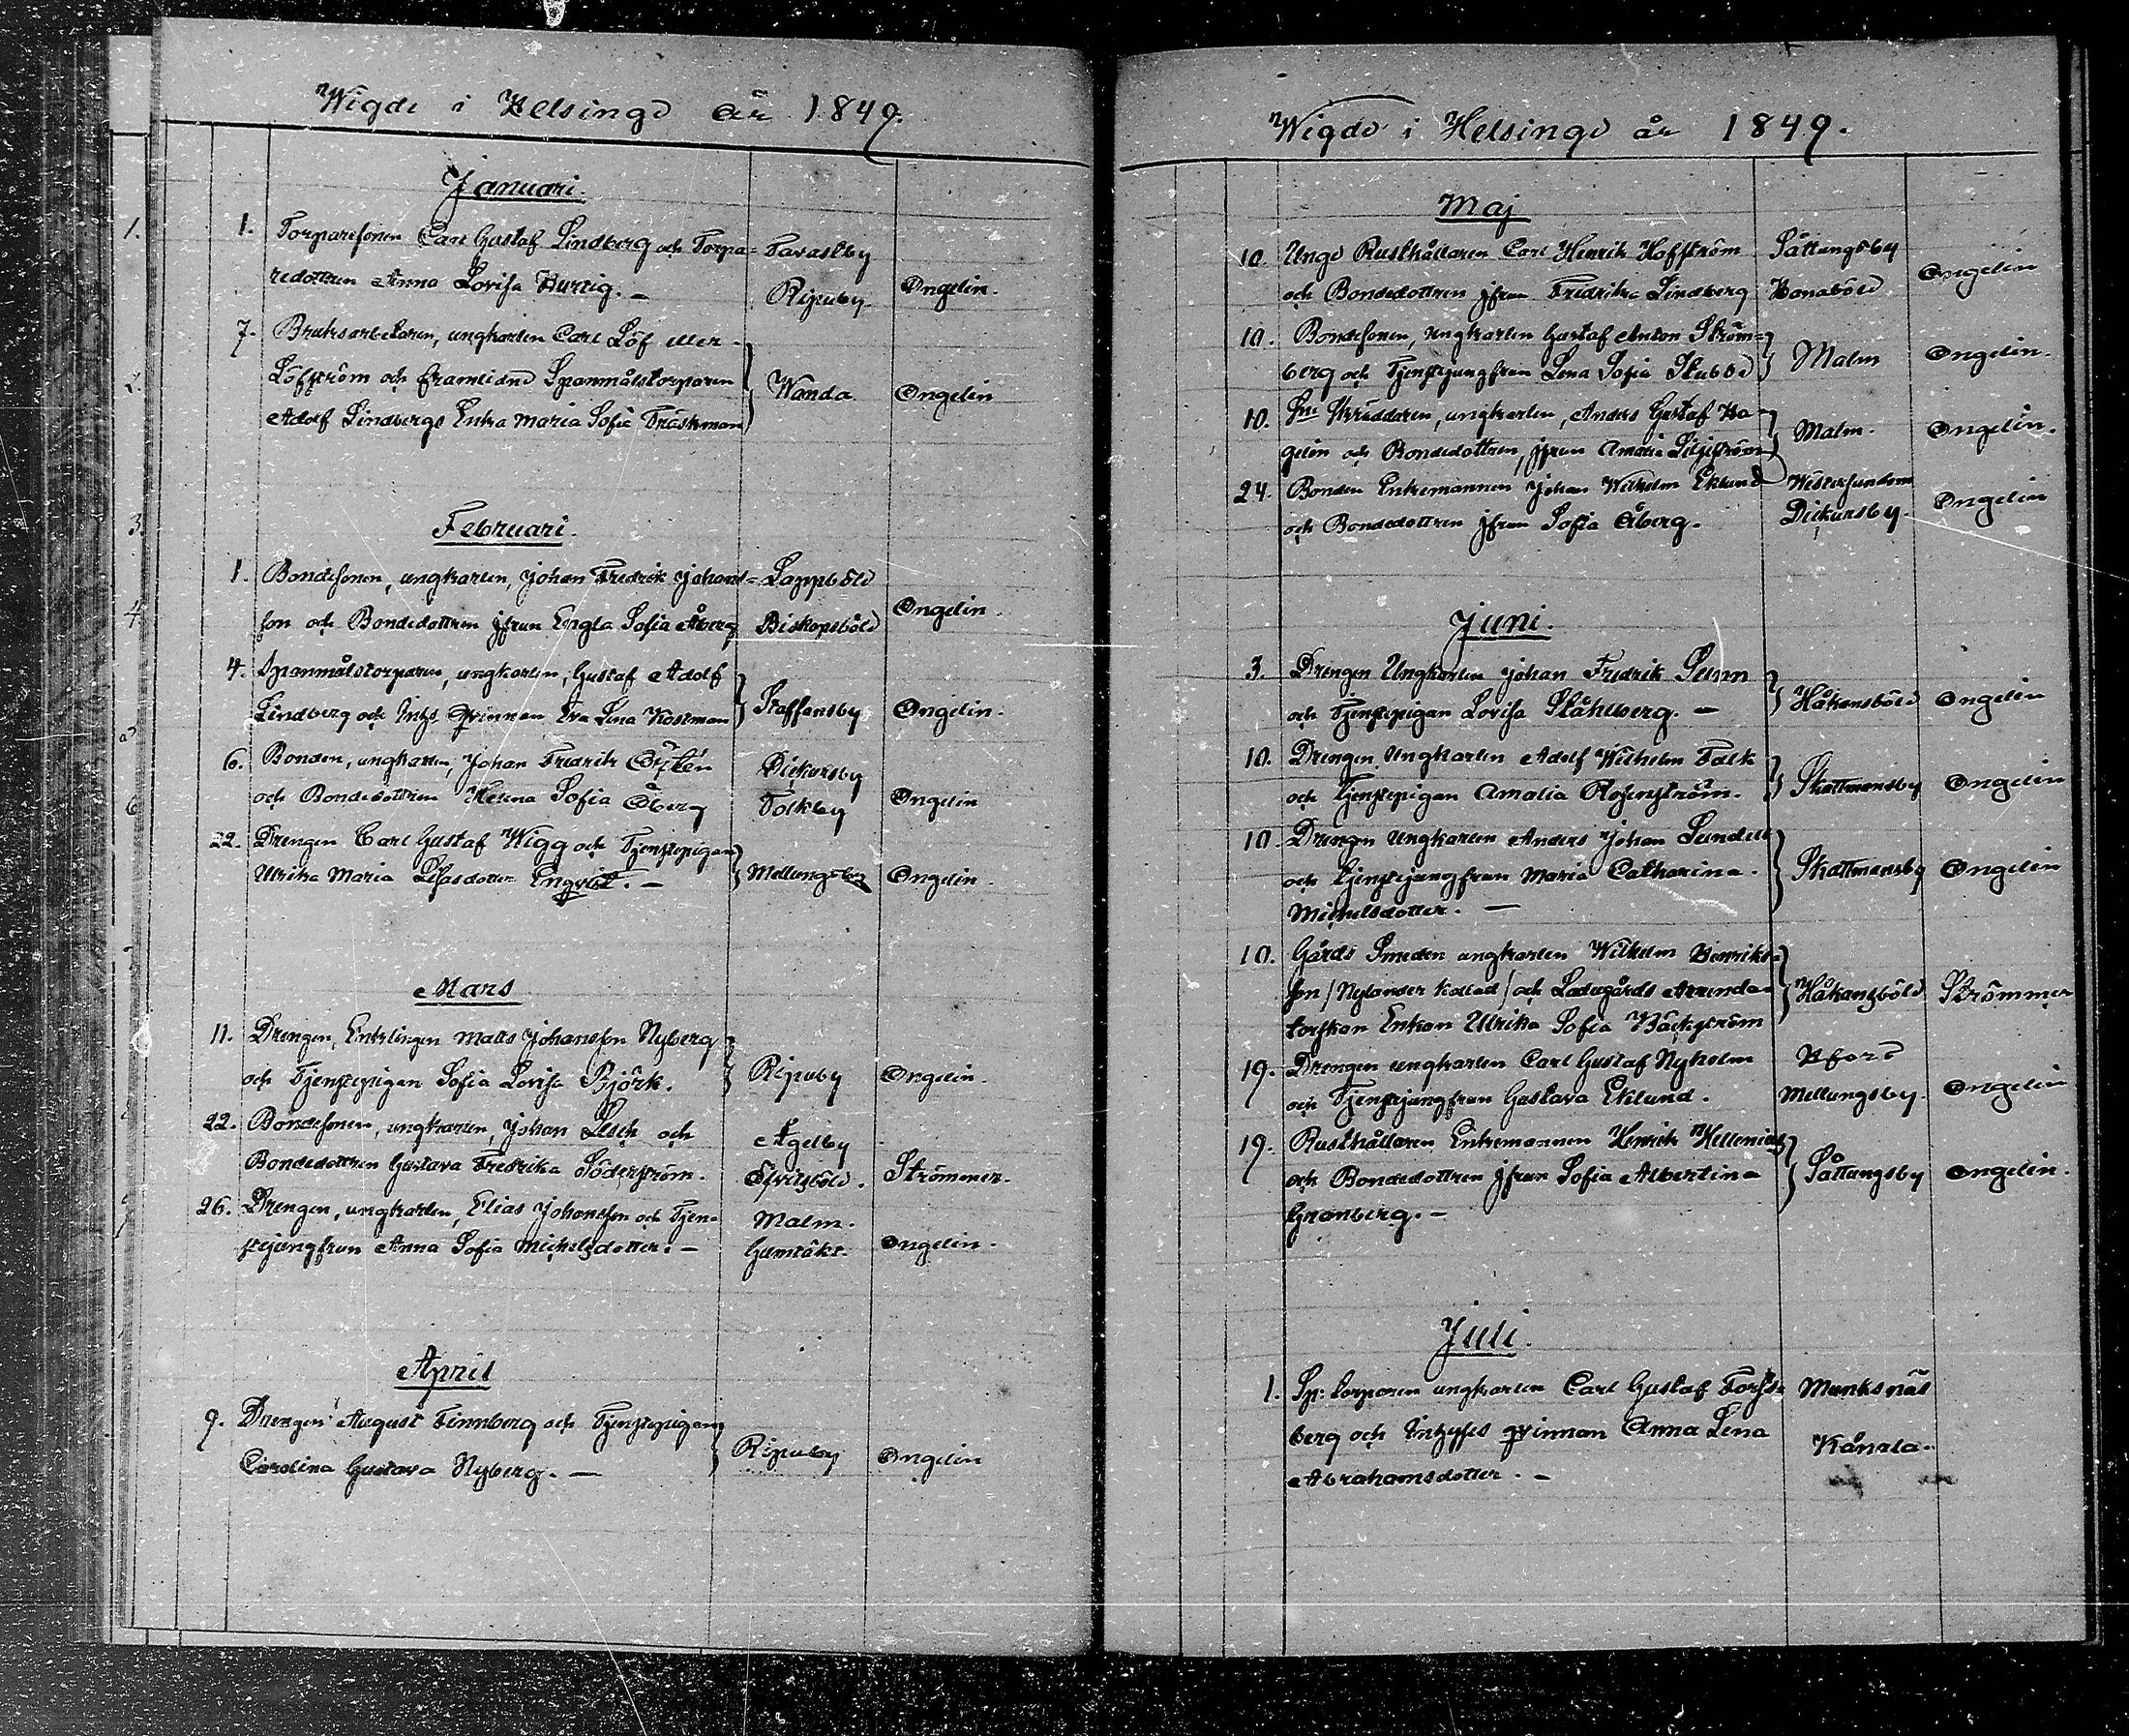 Wigde i Helsinge år 1849.
Januari.
1. Torparesonen Carl Gustaf Lindberg och Torpa= Tavastby
redottren Anna Lovisa Hurtig. — Ripuby. Ongelin.
7. Bruksarbetaren, ungkarlen Carl Löf eller
Löfström och framlidne Spanmålstorparen Wanda Ongelin
Adolf Lindbergs Enka Maria Sofia Träskman
Februari.
1. Bondesonen, ungkarlen, Johan Fredrik Johans= Lappböle
son och Bondedottren jfrun Engla Sofia Åberg Biskopsböle Ongelin.
4. Spanmålstorparen, ungkarlen, Gustaf Adolf
Lindberg och Inhs qvinnan Eva Lena Kostman Staffansby Ongelin.
6. Bonden, ungkarlen, Johan Fredrik Dickursby
och Bondedottren Helena Sofia Öberg Tolkby Ongelin
22. Drengen Carl Gustaf Wigg och Tjenstepigan
Ulrika Maria Lisasdotter Engqvist. — Mellungsby Ongelin.
Mars
11. Drengen, Enklingen Matts Johansson Nyberg
och Tjenstepigan Sofia Lovisa Björk. Ripuby Ongelin.
22. Bondesonen, ungkarlen, Johan Lesch och Agelby
Bondedottren Gustava Fredrika Söderström. Ofvitsböle. Strömmer.
26. Drengen, ungkarlen, Elias Johansson och Tjen= Malm.
stejungfrun Anna Sofia Michelsdotter. — Gumtäkt. Ongelin.
April
9. Drengen August Finnberg och Tjenstepigan
Carolina Gustava Nyberg. — Ripuby Ongelin
Wigde i Helsinge år 1849.
Maj
10. Unge Rusthållaren Carl Henrik Hoffström Såttungsby
och Bondedottren jfrun Fredrika Lindberg Hanaböle Ongelin
10. Bondesonen, ungkarlen Gustaf Anton Ström=
berg och Tjenstejungfrun Lena Sofia Stubbe Malm Ongelin.
10. Sn: Skräddaren, ungkarlen, Anders Gustaf Ha=
gelin och Bondedottren, jfrun Amalia Liljeström Malm. Ongelin.
24. Bonden Enkemannen Johan Wilhelm Eklund Westersundom
och Bondedottren jfrun Sofia Åberg. Dickursby. Ongelin
Juni.
3. Drengen Ungkarlen Johan Fredrik
och Tjenstepigan Lovisa Ståhlberg. — Håkansböle Ongelin
10. Drengen Ungkarlen Adolf Wilhelm Falk
och Tjenstepigan Amalia Rosenström. Skattmansby Ongelin
10. Drengen Ungkarlen Anders Johan Lundell
och Tjenstejungfrun Maria Catharina Skattmansby Ongelin
Michelsdotter. —
10. Gårds Smeden ungkarlen Wilhelm Henriks=
son / Nylander kallad / och Ladugårds Arrenda= Håkansböle Strömmer
torskan Enkan Ulrika Sofia Bäckström
19. Drengen ungkarlen Carl Gustaf Nyholm Hfors
och Tjenstejungfrun Gustava Eklund. Mellungsby. Ongelin
19. Rusthållaren Enkemannen Henrik Hellenius
och Bondedottren jfrun Sofia Albertina Såttungsby Ongelin.
Granberg. —
Juli.
1. Sp: torparen ungkarlen Carl Gustaf Forss= Munksnäs
berg och Inhyses qvinnan Anna Lena Kånala.
Abrahamsdotter. —